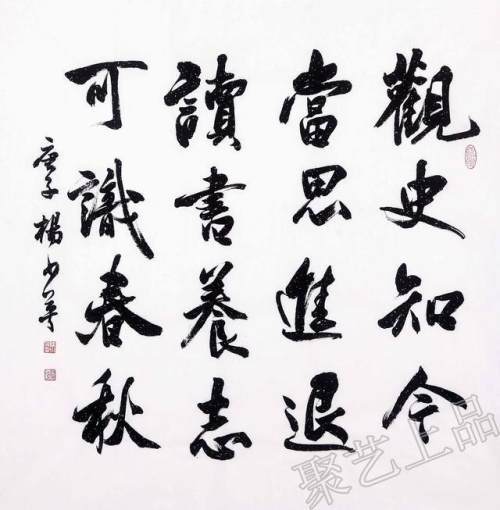 觀史知今
當思進退
讀書養志
可識春秋
庚子楊少華
聚艺上品